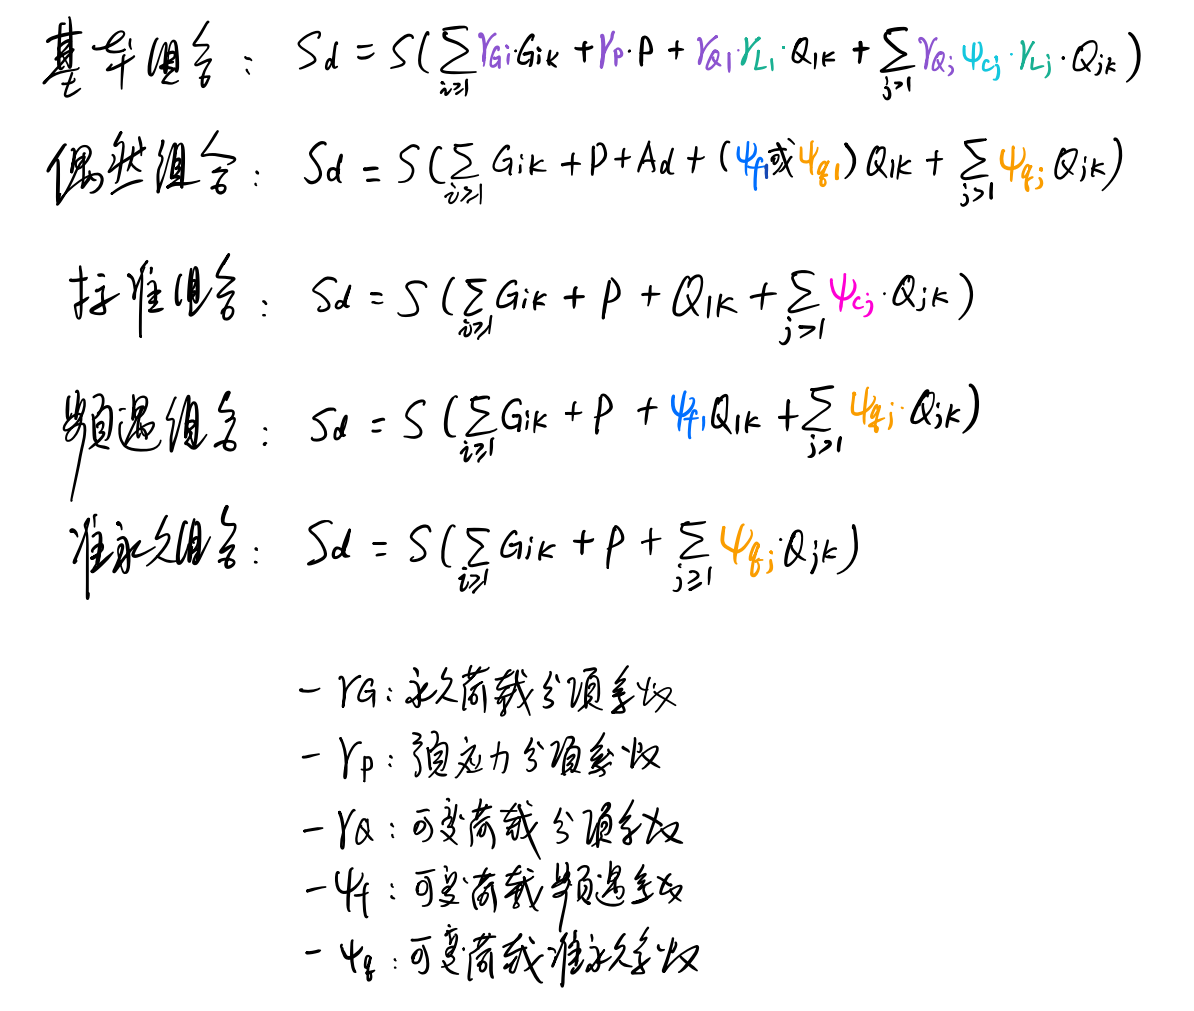 基本组合： Sd = S(∑i≥1 γGi·Gik + γP·P + γQ1·γL1·Q1k + ∑j>1 γQj ψcj·γLj·Qjk)
偶然组合： Sd = S(∑i≥1 Gik + P + Ad + (ψf1或ψq1)Q1k + ∑j>1 ψqj Qjk)
标准组合： Sd = S(∑i≥1 Gik + P + Q1k + ∑j>1 ψcj·Qjk)
频遇组合： Sd = S(∑i≥1 Gik + P + ψf1Q1k + ∑j>1 ψqj·Qjk)
准永久组合： Sd = S(∑i≥1 Gik + P + ∑j≥1 ψqj·Qjk)
- γG：永久荷载分项系数
- γP：预应力分项系数
- γQ：可变荷载分项系数
- ψf：可变荷载频遇系数
- ψq：可变荷载准永久系数